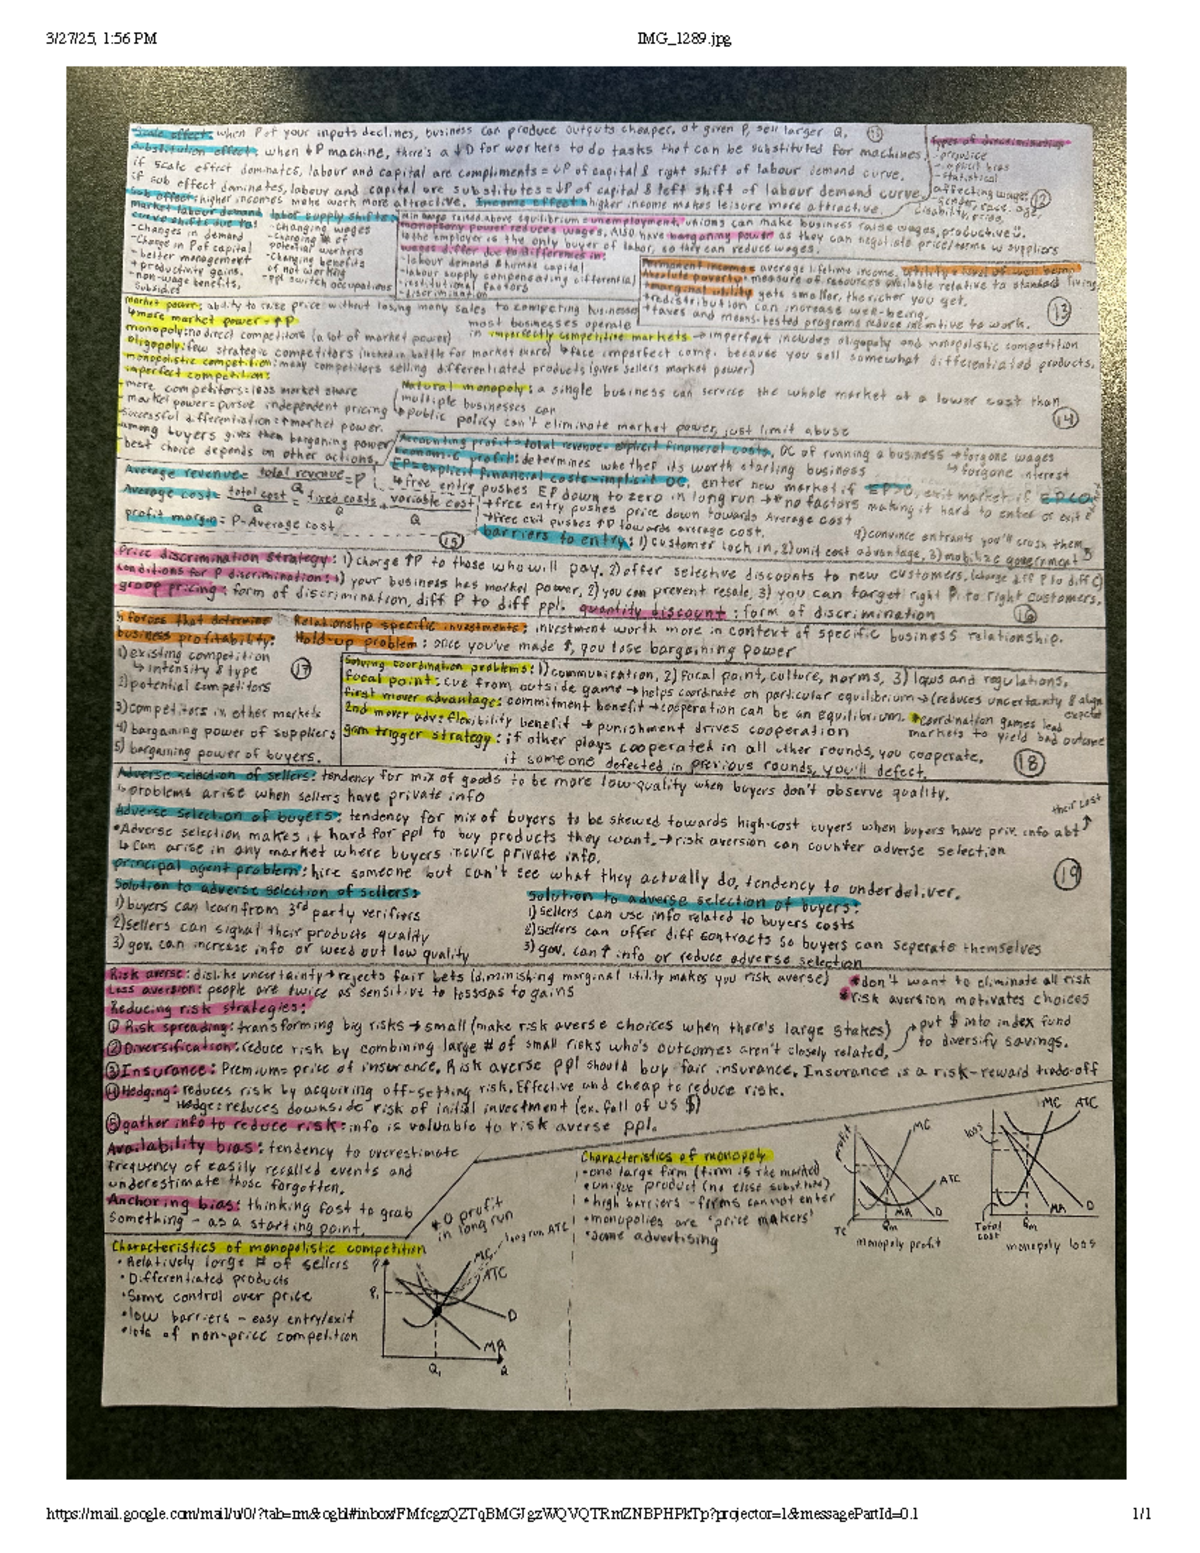 3/27/25, 1:56 PM
IMG_1289.jpg
Scale effect: when P of your inputs declines, business can produce outputs cheaper, at given P, sell larger Q.
Substitution effect: when ↓P machine, there's a ↓D for workers to do tasks that can be substituted for machines.
if scale effect dominates, labour and capital are compliments = ↓P of capital & right shift of labour demand curve.
if sub effect dominates, labour and capital are substitutes = ↓P of capital & left shift of labour demand curve.
Sub effect: higher incomes make work more attractive. Income effect: higher income makes leisure more attractive.
Types of discrimination
- prejudice
- implicit bias
- statistical
affecting wages:
gender, race, age,
disability,
12
market labour demand
curve shifts due to:
- Changes in demand
- Change in P of capital
- better management
+ productivity gains.
- non-wage benefits,
subsidies
labor supply shifts:
- Changing wages
- Changing # of
potential workers
- Changing benefits
of not working
- ppl switch occupations
min wage raised above equilibrium = unemployment, unions can make business raise wages, productive
monopsony power reduces wages. Also have bargaining power as they can negotiate price/terms w suppliers
↳ the employer is the only buyer of labor, so they can reduce wages.
wages differ due to differences in:
- labour demand & human capital
- labour supply compensating differential
- institutional factors
- discrimination
Permanent income = average lifetime income. Utility = level of well being
Absolute poverty: measure of resources available relative to standard living
*marginal utility gets smaller, the richer you get.
*redistribution can increase well-being.
*taxes and means-tested programs reduce incentive to work.
13
market power: ability to raise price without losing many sales to competing businesses
↳more market power = ↑P
monopoly: no direct competitors (a lot of market power)
oligopoly: few strategic competitors (locked in battle for market share)
monopolistic competition: many competitors selling differentiated products (gives sellers market power)
most businesses operate
in imperfectly competitive markets → imperfect includes oligopoly and monopolistic competition
↳ face imperfect comp. because you sell somewhat differentiated products.
imperfect competition:
- more competitors = less market share
- market power = pursue independent pricing
- successful differentiation = ↑market power.
- among buyers gives them bargaining power
- best choice depends on other actions.
Natural monopoly: a single business can service the whole market at a lower cost than
multiple businesses can
↳ public policy can't eliminate market power, just limit abuse
14
Accounting profit = total revenue - explicit financial costs, OC of running a business → forgone wages
↳ forgone interest
economic profit: determines whether its worth starting business
EP = explicit financial costs - implicit OC, enter new market if EP>0, exit market if EP<0
↳ free entry pushes EP down to zero in long run → * no factors making it hard to enter or exit
→ free entry pushes price down towards Average cost
→ free exit pushes ↑P towards average cost.
Average revenue = total revenue / Q = P
Average cost = total cost / Q = fixed costs / Q + variable cost / Q
profit margin = P - Average cost
15
barriers to entry: 1) customer lock in, 2) unit cost advantage, 3) mobilize government
4) convince entrants you'll crush them
Price discrimination strategy: 1) charge ↑P to those who will pay. 2) offer selective discounts to new customers. (charge diff P to diff C)
conditions for P discrimination: 1) your business has market power, 2) you can prevent resale, 3) you can target right P. to right customers.
group pricing: form of discrimination, diff P to diff ppl. quantity discount: form of discrimination
16
5 forces that determine
business profitability:
1) existing competition
↳ intensity & type
2) potential competitors
3) competitors in other markets
4) bargaining power of suppliers
5) bargaining power of buyers.
17
Relationship specific investments: investment worth more in context of specific business relationship.
Hold-up problem: once you've made $, you lose bargaining power
Solving coordination problems: 1) communication, 2) focal point, culture, norms, 3) laws and regulations.
focal point: cue from outside game → helps coordinate on particular equilibrium → (reduces uncertainty & align
first mover advantage: commitment benefit → cooperation can be an equilibrium. *coordination games lead
markets to yield bad outcome
2nd mover adv: flexibility benefit → punishment drives cooperation
grim trigger strategy: if other plays cooperated in all other rounds, you cooperate.
if someone defected in previous rounds, you'll defect.
18
Adverse selection of sellers: tendency for mix of goods to be more low-quality when buyers don't observe quality.
↳ problems arise when sellers have private info
Adverse selection of buyers: tendency for mix of buyers to be skewed towards high-cost buyers when buyers have priv. info abt
their cost
*Adverse selection makes it hard for ppl to buy products they want. → risk aversion can counter adverse selection
↳ can arise in any market where buyers incure private info.
principal agent problem: hire someone but can't see what they actually do, tendency to underdeliver.
19
Solution to adverse selection of sellers:
1) buyers can learn from 3rd party verifiers
2) sellers can signal their products quality
3) gov. can increase info or weed out low quality
Solution to adverse selection of buyers:
1) sellers can use info related to buyers costs
2) sellers can offer diff contracts so buyers can seperate themselves
3) gov. can ↑ info or reduce adverse selection
Risk averse: dislike uncertainty → rejects fair bets (diminishing marginal utility makes you risk averse)
Loss aversion: people are twice as sensitive to losses as to gains
*don't want to eliminate all risk
*risk aversion motivates choices
Reducing risk strategies:
① Risk spreading: transforming big risks → small (make risk averse choices when there's large stakes)
② Diversification: reduce risk by combining large # of small risks who's outcomes aren't closely related.
put $ into index fund
to diversify savings.
③ Insurance: Premium = price of insurance. Risk averse ppl should buy fair insurance. Insurance is a risk-reward trade-off
④ Hedging: reduces risk by acquiring off-setting risk. Effective and cheap to reduce risk.
Hedge: reduces downside risk of initial investment (ex. fall of US $)
⑤ gather info to reduce risk: info is valuable to risk averse ppl.
Availability bias: tendency to overestimate
frequency of easily recalled events and
underestimate those forgotten.
Anchoring bias: thinking fast to grab
something - as a starting point.
Characteristics of monopoly
• one large firm (firm is the market)
• unique product (no close substitutes)
• high barriers - firms cannot enter
• monopolies are 'price makers'
• some advertising
profit
MC
ATC
MR
D
TC
Qm
monopoly profit
loss
MC
ATC
MR
D
Total
cost
Qm
monopoly loss
Characteristics of monopolistic competition
• Relatively large # of sellers
• Differentiated products
• Some control over price
• low barriers - easy entry/exit
• lots of non-price competition
*0 profit
in long run
long run ATC
P
MC
ATC
P1
D
MR
Q1
Q
https://mail.google.com/mail/u/0/?tab=rm&ogbl#inbox/FMfcgzQZTqBMGJgzWQVQTRmZNBPHPkTp?projector=1&messagePartId=0.1
1/1